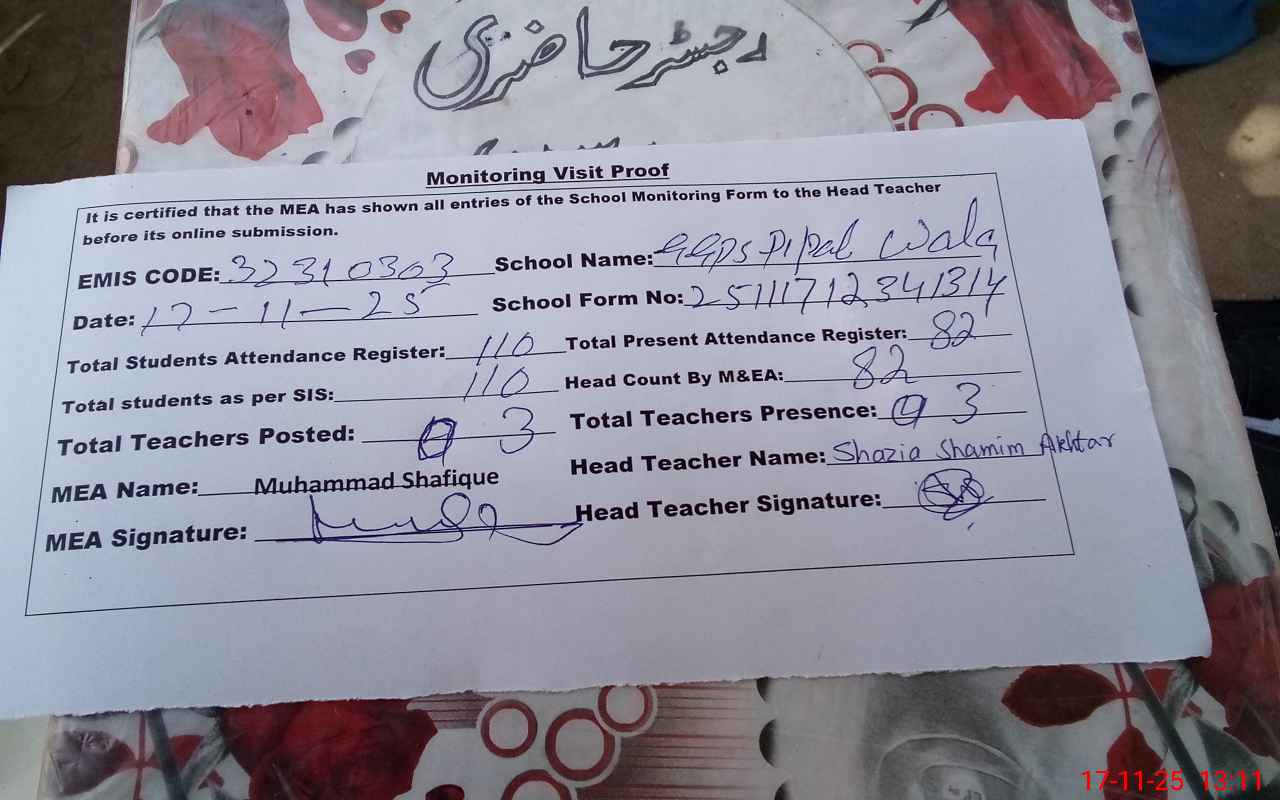 رجسٹر حاضری
Monitoring Visit Proof
It is certified that the MEA has shown all entries of the School Monitoring Form to the Head Teacher
before its online submission.
EMIS CODE: 32310303 School Name: GGPS Pipal Wala
Date: 17-11-25 School Form No: 25111712341314
Total Students Attendance Register: 110 Total Present Attendance Register: 82
Total students as per SIS: 110 Head Count By M&EA: 82
Total Teachers Posted: 3 Total Teachers Presence: 3
MEA Name: Muhammad Shafique Head Teacher Name: Shazia Shamim Akhtar
MEA Signature: Head Teacher Signature:
17-11-25 13:11